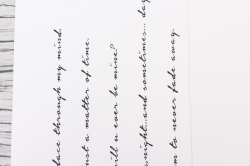 through my mind.
just a matter of time.
will u ever be mine?
night...and sometimes... day
to never fade away.